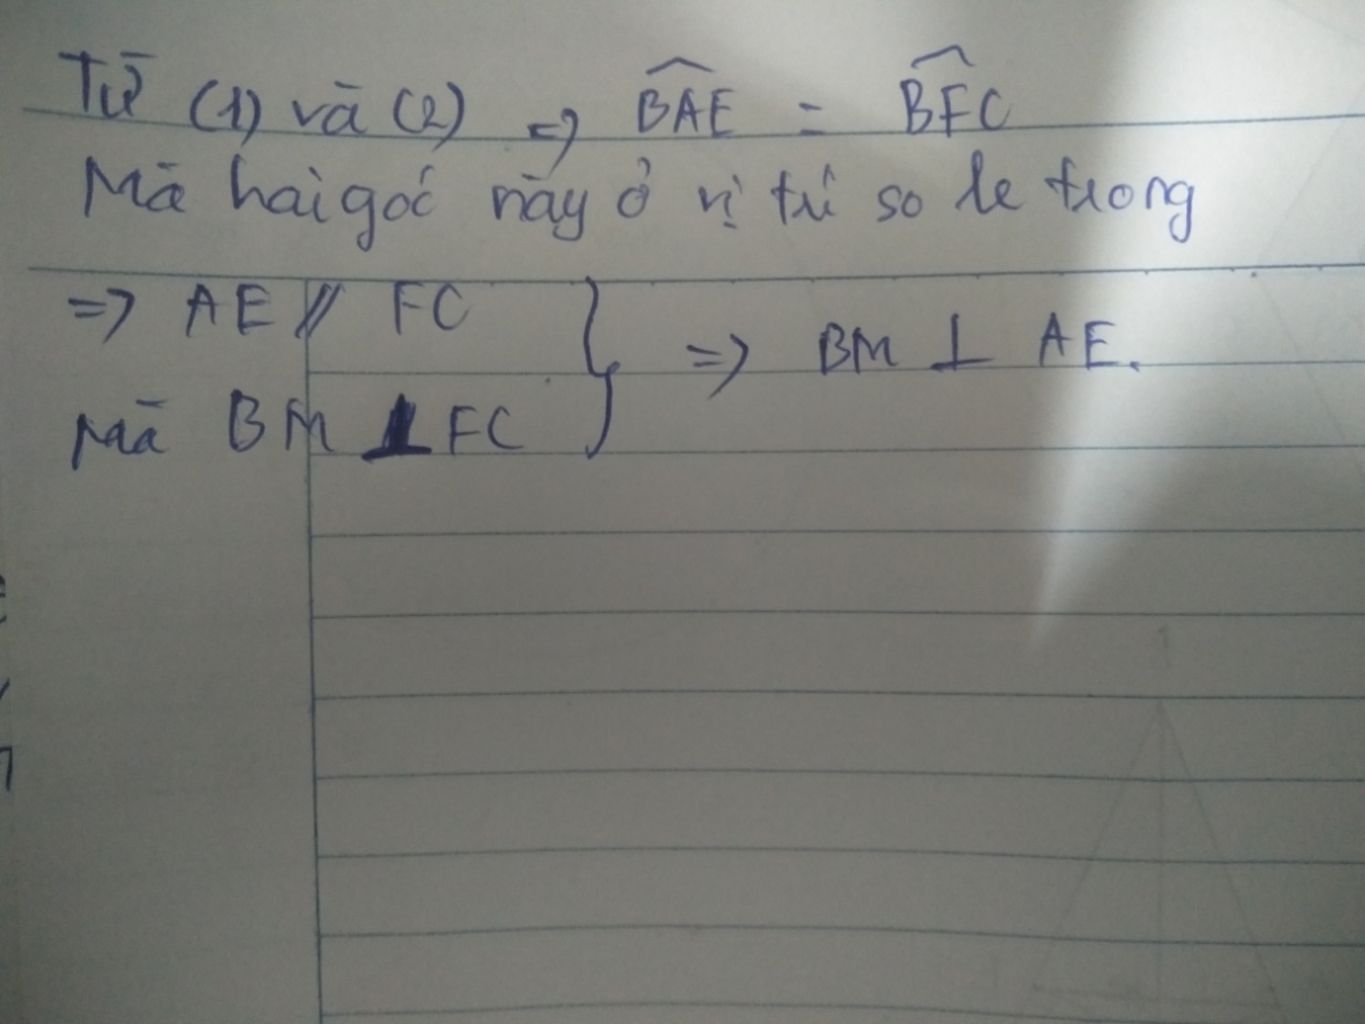 Từ (1) và (2) => \widehat{BAE} = \widehat{BFC}
Mà hai góc này ở vị trí so le trong
=> AE // FC
mà BM ⊥ FC } => BM ⊥ AE.